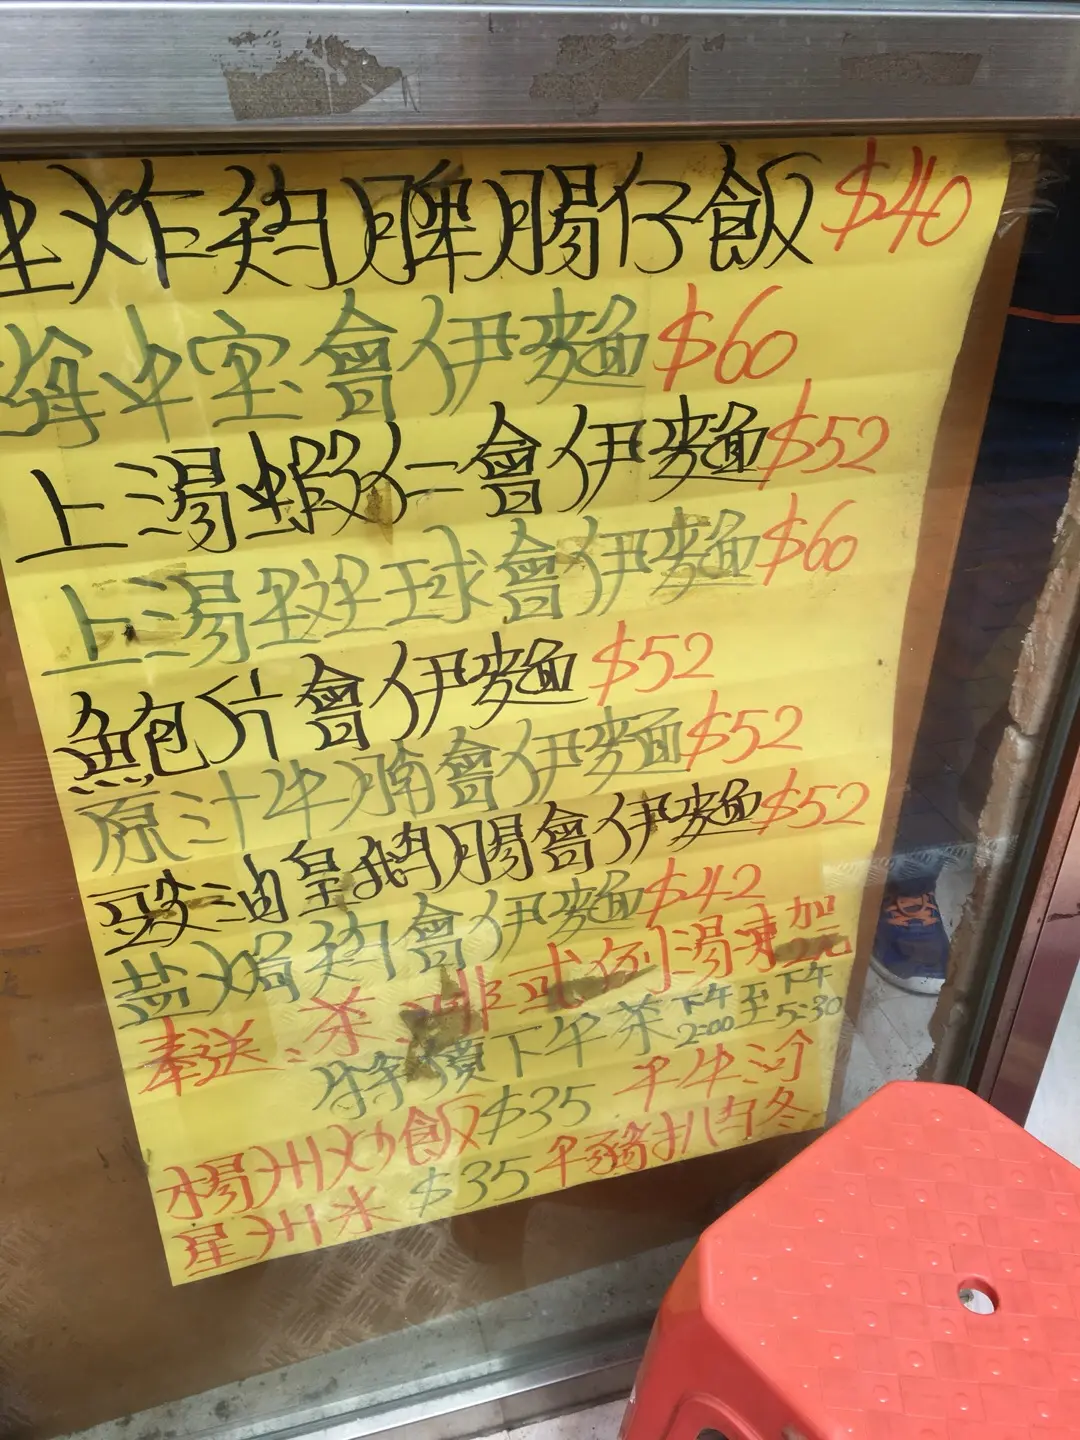 炸鸡脾腸仔飯 $40
海中宝會伊麵 $60
上湯蝦仁會伊麵 $52
上湯班球會伊麵 $60
鮑片會伊麵 $52
原汁牛腩會伊麵 $52
豉油皇鵝腸會伊麵 $52
盐焗鸡會伊麵 $42
奉送:茶啡或例湯凍加2元
特價下午茶下午2:00至下午5:30
楊州炒飯 $35 干牛河
星州米 $35 干豬扒冬